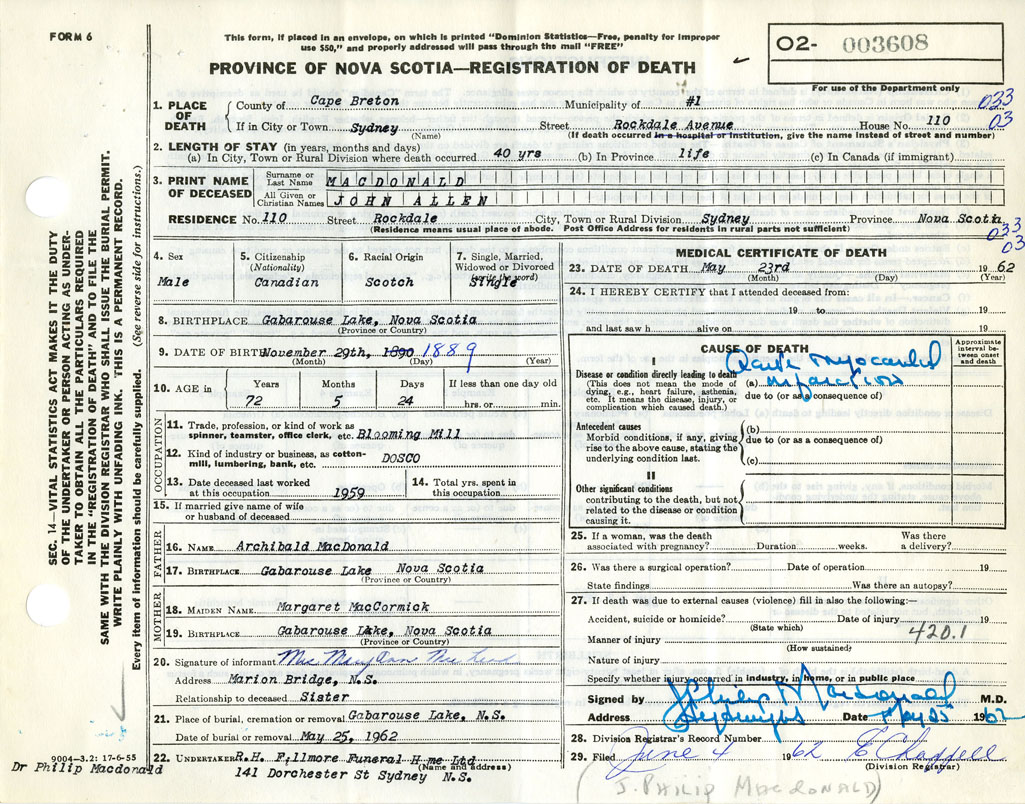 FORM 6
This form, if placed in an envelope, on which is printed "Dominion Statistics—Free, penalty for improper
use $50," and properly addressed will pass through the mail "FREE"
PROVINCE OF NOVA SCOTIA—REGISTRATION OF DEATH
O2- 003608
For use of the Department only
033
03
1. PLACE OF DEATH
County of Cape Breton Municipality of #1
If in City or Town Sydney Street Rockdale Avenue House No. 110
(Name) (If death occurred in a hospital or institution, give the name instead of street and number)
2. LENGTH OF STAY (in years, months and days)
(a) In City, Town or Rural Division where death occurred 40 yrs (b) In Province life (c) In Canada (if immigrant)
3. PRINT NAME OF DECEASED
Surname or Last Name MACDONALD
All Given or Christian Names JOHN ALLEN
RESIDENCE No. 110 Street Rockdale City, Town or Rural Division Sydney Province Nova Scotia
(Residence means usual place of abode. Post Office Address for residents in rural parts not sufficient)
033
03
4. Sex
Male
5. Citizenship
(Nationality)
Canadian
6. Racial Origin
Scotch
7. Single, Married,
Widowed or Divorced
(write the word)
Single
8. BIRTHPLACE Gabarouse Lake, Nova Scotia
(Province or Country)
9. DATE OF BIRTH November 29th, 1890 1889
(Month) (Day) (Year)
10. AGE in
Years Months Days If less than one day old
72 5 24 hrs. or min.
OCCUPATION
11. Trade, profession, or kind of work as
spinner, teamster, office clerk, etc. Blooming Mill
12. Kind of industry or business, as cotton-
mill, lumbering, bank, etc. DOSCO
13. Date deceased last worked
at this occupation 1959
14. Total yrs. spent in
this occupation
15. If married give name of wife
or husband of deceased
FATHER
16. NAME Archibald MacDonald
17. BIRTHPLACE Gabarouse Lake Nova Scotia
(Province or Country)
MOTHER
18. MAIDEN NAME Margaret MacCormick
19. BIRTHPLACE Gabarouse Lake, Nova Scotia
(Province or Country)
20. Signature of informant Mrs Mary Ann
Address Marion Bridge, N.S.
Relationship to deceased Sister
21. Place of burial, cremation or removal Gabarouse Lake, N.S.
Date of burial or removal May 25, 1962
22. UNDERTAKER R.H. Fillmore Funeral H me Ltd
(Name and address)
141 Dorchester St Sydney N.S.
MEDICAL CERTIFICATE OF DEATH
23. DATE OF DEATH May 23rd 1962
(Month) (Year)
24. I HEREBY CERTIFY that I attended deceased from:
19 to 19
and last saw h alive on 19
CAUSE OF DEATH
Approximate interval between onset and death
I
Disease or condition directly leading to death
(This does not mean the mode of
dying, e.g., heart failure, asthenia,
etc. It means the disease, injury, or
complication which caused death.)
(a) Acute Myocardial
infarction
due to (or as a consequence of)
Antecedent causes
Morbid conditions, if any, giving
rise to the above cause, stating the
underlying condition last.
(b)
due to (or as a consequence of)
(c)
II
Other significant conditions
contributing to the death, but not
related to the disease or condition
causing it.
25. If a woman, was the death
associated with pregnancy? Duration weeks. Was there
a delivery?
26. Was there a surgical operation? Date of operation 19
State findings Was there an autopsy?
27. If death was due to external causes (violence) fill in also the following:—
Accident, suicide or homicide? Date of injury 19
(State which)
420.1
Manner of injury
(How sustained)
Nature of injury
Specify whether injury occurred in industry, in home, or in public place
Signed by J Philip Macdonald M.D.
Address Date May 25 1962
28. Division Registrar's Record Number
29. Filed June 4 1962 E Chappell
(Division Registrar)
(J. PHILIP MACDONALD)
SEC. 14—VITAL STATISTICS ACT MAKES IT THE DUTY
OF THE UNDERTAKER OR PERSON ACTING AS UNDER-
TAKER TO OBTAIN ALL THE PARTICULARS REQUIRED
IN THE "REGISTRATION OF DEATH" AND TO FILE THE
SAME WITH THE DIVISION REGISTRAR WHO SHALL ISSUE THE BURIAL PERMIT.
WRITE PLAINLY WITH UNFADING INK. THIS IS A PERMANENT RECORD.
Every item of information should be carefully supplied. (See reverse side for instructions.)
9004—3.2: 17-6-55
Dr Philip Macdonald